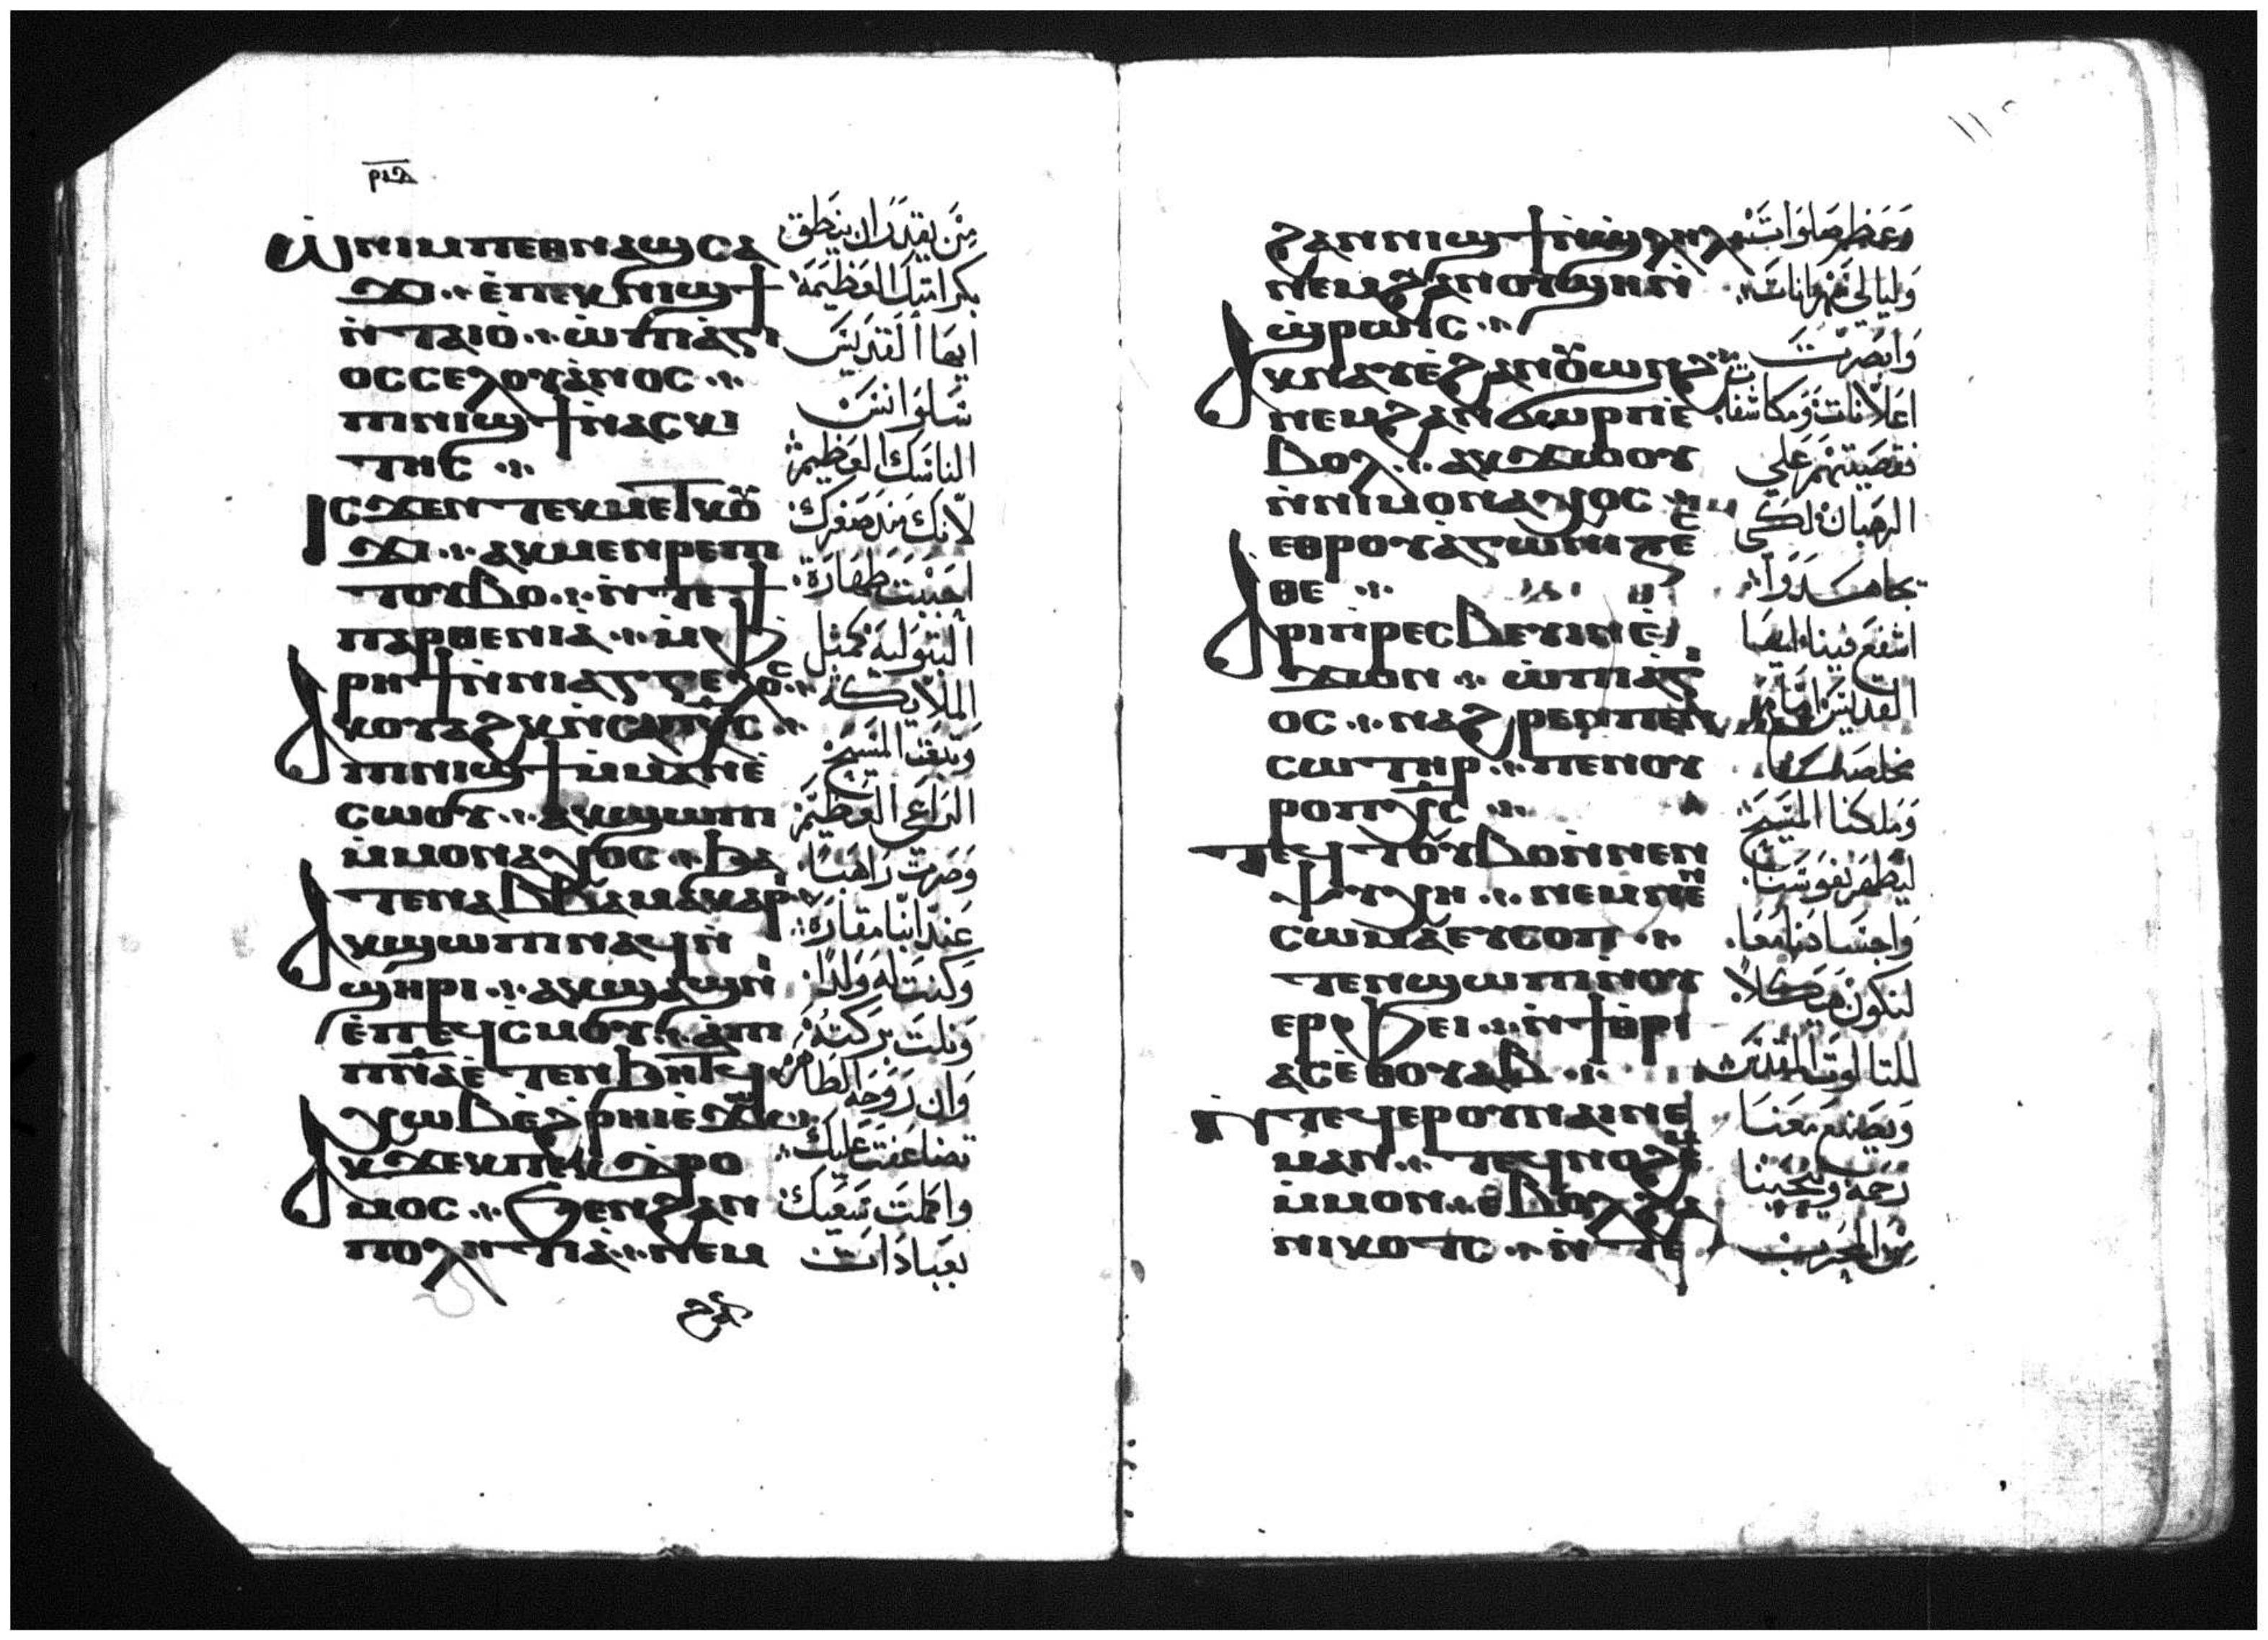 ⲣⲓⲇ
ⲱ̀ⲛⲓⲙⲡⲉⲑⲛⲁϣⲥⲁ
ϫⲓ ⲉ̀ⲡⲉⲕⲛⲓϣϯ
ⲛ̀ⲧⲁⲓⲟ̀ ⲱ̀ⲡⲓⲁ̀ⲅⲓ
ⲟⲥⲥⲉⲗⲟⲩⲁ̀ⲛⲟⲥ
ⲡⲓⲛⲓϣϯⲛ̀ⲁⲥⲕⲓ
ⲧⲏⲥ
ⲓⲥϫⲉⲛⲧⲉⲕⲙⲉⲧⲕⲟⲩ
ϫⲓ ⲁⲕⲙⲉⲛⲣⲉⲡⲓ
ⲧⲟⲩⲃⲟ ⲛ̀ⲧⲉϯ
ⲡⲁⲣⲑⲉⲛⲓⲁ̀ ⲙ̀ⲫ
ⲣⲏϯⲛ̀ⲛⲓⲁⲅⲅⲉⲗⲟⲥ
ⲁⲕⲟⲩⲁϩⲕⲛ̀ⲥⲁⲡⲭ̅ⲥ̅
ⲡⲓⲛⲓϣϯⲙ̀ⲙⲁⲛⲉ̀
ⲥⲱⲟⲩ ⲁⲕϣⲱⲡⲓ
ⲙ̀ⲙⲟⲛⲁⲭⲟⲥ ϧⲁ
ⲧⲉⲛⲁⲃⲃⲁⲙⲁⲕⲁⲣⲓ
ⲁⲕϣⲱⲡⲓⲛⲁϥⲛ̀
ϣⲏⲣⲓ ⲁⲕϣⲁϣⲛⲓ
ⲉ̀ⲡⲉϥⲥ̀ⲙⲟⲩ ⲁ̀ⲡⲓ
ⲡ̅ⲛ̅ⲁ̅
ⲁⲕϫⲉⲕⲡⲉⲕⲇⲣⲟ
ⲙⲟⲥ ϧⲉⲛϩⲁⲛ
ⲡⲟⲗⲏⲧⲓⲁ̀ ⲛⲉⲙ
من يقدر ان ينطق
بكرامتك العظيمة
ايها القديس
سلوانس
الناسك العظيم
لانك منذ صغرك
احببت طهارة
البتولية كمثل
الملايكة
وتبعت المسيح
الراعي العظيم
وصرت راهبا
عند انبا مقارة
وكنت له ولدا
ونلت بركته
وان روحه الطاهر
تضاعفت عليك
واكملت سعيك
بعبادات
ϩⲁⲛⲛⲓϣϯⲛ̀ϣ̀ⲗⲏⲗ
ⲛⲉⲙϩⲁⲛⲟⲩϣⲏⲛ̀
ϣ̀ⲣⲱⲓⲥ
ⲁⲕⲛⲁⲩⲉ̀ϩⲁⲛⲟⲩⲱⲛϩ
ⲛⲉⲙϩⲁⲛϭⲱⲣⲡⲉ̀
ⲃⲟⲗ ⲁⲕϫⲱⲟⲩ
ⲛ̀ⲛⲓⲙⲟⲛⲁⲭⲟⲥ
ⲉⲑⲣⲟⲩⲁ̀ⲅⲱⲛⲓⲍⲉⲥ
ⲑⲉ
ⲁⲣⲓⲡⲣⲉⲥⲃⲉⲩⲓⲛⲉ̀
ϫⲱⲛ ⲱ̀ⲡⲓⲁ̀ⲅⲓ
ⲟⲥ ⲛⲁϩⲣⲉⲛⲡⲉⲛ
ⲥⲱⲧⲏⲣ ⲡⲉⲛⲟⲩ
ⲣⲟⲡⲭ̅ⲥ̅
ⲛ̀ⲧⲉϥⲧⲟⲩⲃⲟⲛ̀ⲛⲉⲛ
ⲯⲩⲭⲏ ⲛⲉⲙⲛⲉⲛ
ⲥⲱⲙⲁⲉⲩⲥⲟⲡ
ⲧⲉⲛϣⲱⲡⲓⲛⲟⲩ
ⲉⲣⲫⲉⲓ ⲛ̀ϯⲑⲣⲓ
ⲁⲥⲉ̀ⲑⲟⲩⲁⲃ
ⲛ̀ⲧⲉϥⲉⲣⲟⲩⲛⲁⲓⲛⲉ
ⲙⲁⲛ ⲧⲉϥⲛⲟϩⲉⲙ
ⲙ̀ⲙⲟⲛ ⲉ̀ⲃⲟⲗϩⲁ
ⲛⲓⲕⲟⲧⲥ ⲛ̀ⲧⲉ
وعظم صلوات
وليالي سهرانات
وابصرت
اعلانات ومكاشفات
الرهبان لكي
يجاهدوا
اشفع فينا ايها
القديس امام
مخلصنا
وملكنا المسيح
ليطهر نفوسنا
واجسادنا معا
لنكون هيكلا
للثالوث المقدس
ويصنع معنا
رحمة وينجينا